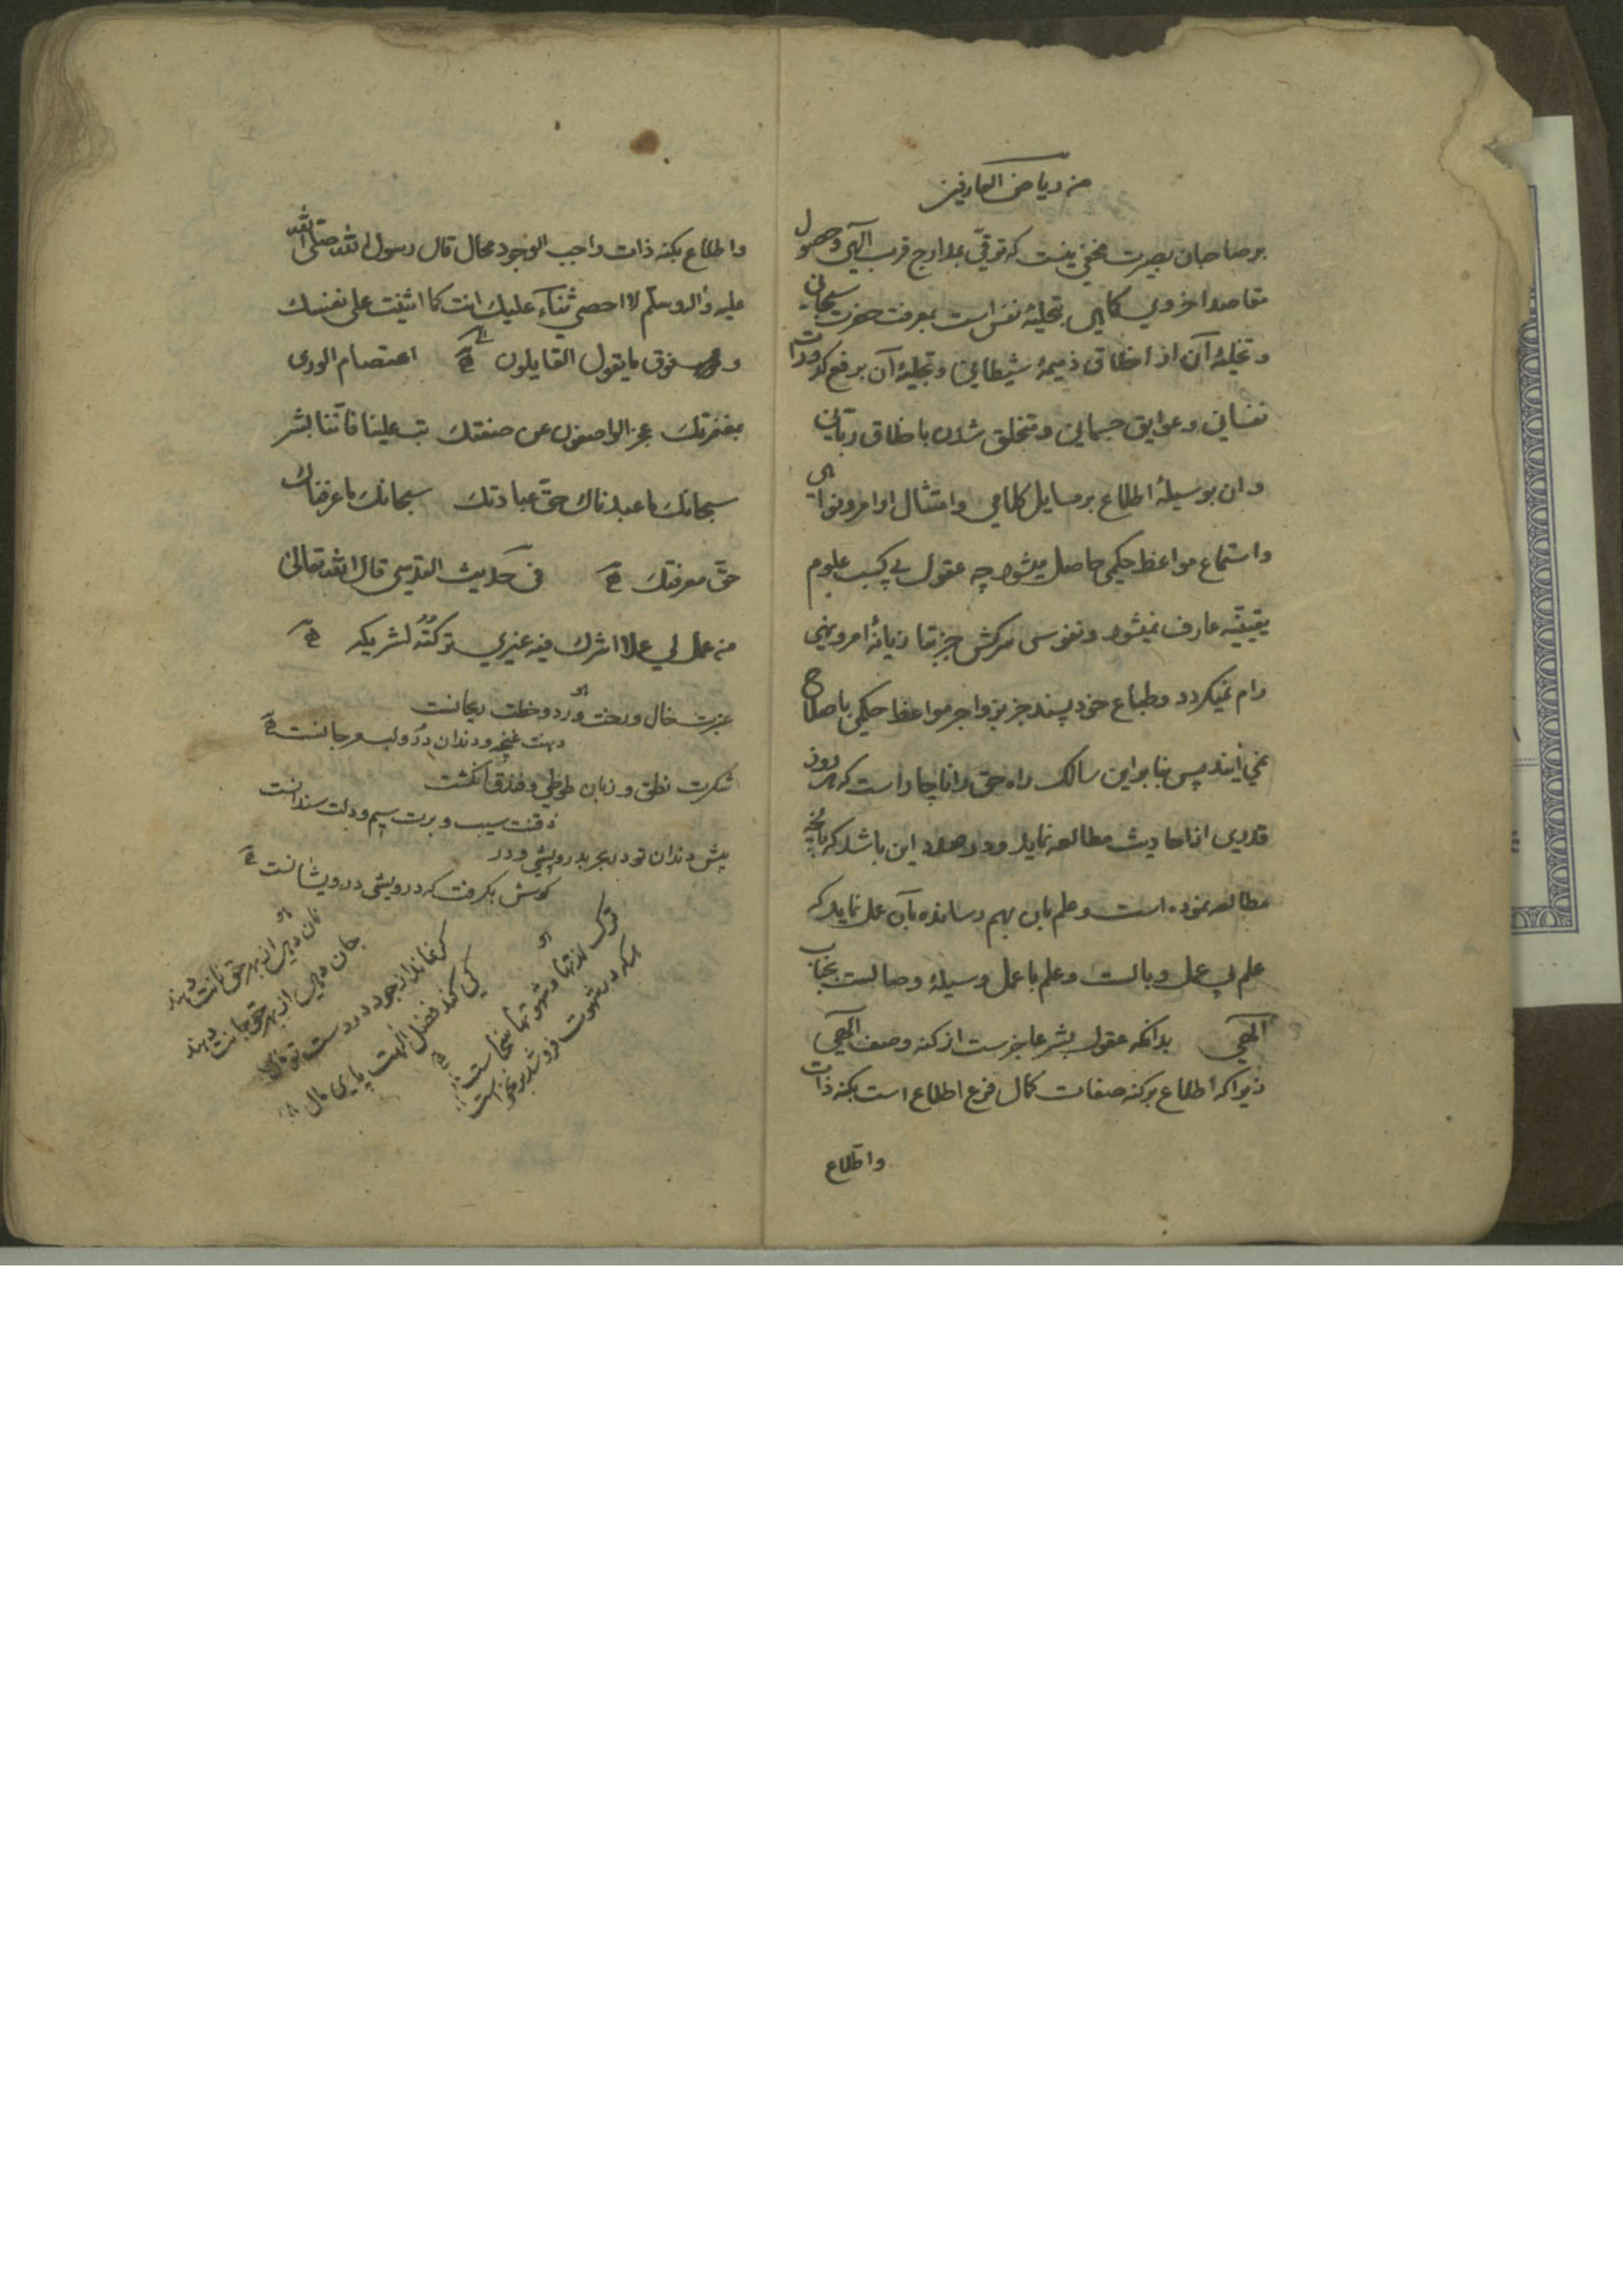 من ریاض العارفین
بر صاحبان بصیرت مخفی نیست که ترقی بمدارج قرب الهی و حصول
مقاصد اخروی کماهی بتحلیهٔ نفس است بمعرفت حضرت سبحانی
و تخلیهٔ آن از اخلاق ذمیمهٔ شیطانی و تجلیهٔ آن برفع کدورات
نفسانی و عوایق جسمانی و متخلق شدن باخلاق ربانی
و ان بوسیلهٔ اطلاع بر مسایل کلامی و امتثال اوامر و نواهی
و استماع مواعظ حکمی حاصل میشود چه عقول بی کسب علوم
یقینیّه عارف نمیشود و نفوس سرکش جز بتازیانهٔ امر و نهی
رام نمیکردد و طباع خود پسند جز بزواجر مواعظ حکمی باصلاح
نمی آیند پس بنا براین سالک راه حق را ناچار است که هر روز
قدری از احادیث مطالعه نماید و در صدد این باشد که بانچه
مطالعه نموده است و علم بان بهم رسانده بآن عمل نماید که
علم بی عمل وبالست و علم با عمل وسیلهٔ وصالست بجناب
الهی بدانکه عقول بشر عاجزست از کنه وصف الهی
زیرا که اطلاع بر کنه صفات کمال فرع اطلاع است بکنه ذات
و اطلاع
و اطلاع بکنه ذات واجب الوجود محال قال رسول الله صلی الله
علیه و آله و سلّم لا احصی ثناء علیك انت کما اثنیت علی نفسك
و فوق ما یقول القایلون اعتصام الوری
بمغفرتك عجز الواصفون عن صفتك تب علینا فانّنا بشر
سبحانك ما عبدناك حقّ عبادتك سبحانك ما عرفناك
حقّ معرفتك فی حدیث القدسی قال الله تعالی
من عمل لی عملا اشرك فیه غیری ترکتُه لشریکه
عنبرت خال و رخت ورد و خطت ریحانست
دهنت غنچه و دندان دُر و لب مرجانست
شکرت نطق و زبان طوطی و فندق انکشت
ذقنت سیب و برت سیم و دلت سندانست
پیش دندان تو در بحر بدرویشی و در
کوش بکرفت که درویشی درویشانست
ترك لذتها و شهوتها سخاست
هر که در شهوت فرو شد بر نخواست
کر نماند از جود در دست تو مال
کی کند فضل الهت پایمال
نان دهی از بهر حق نانت دهند
جان دهی از بهر حق جانت دهند